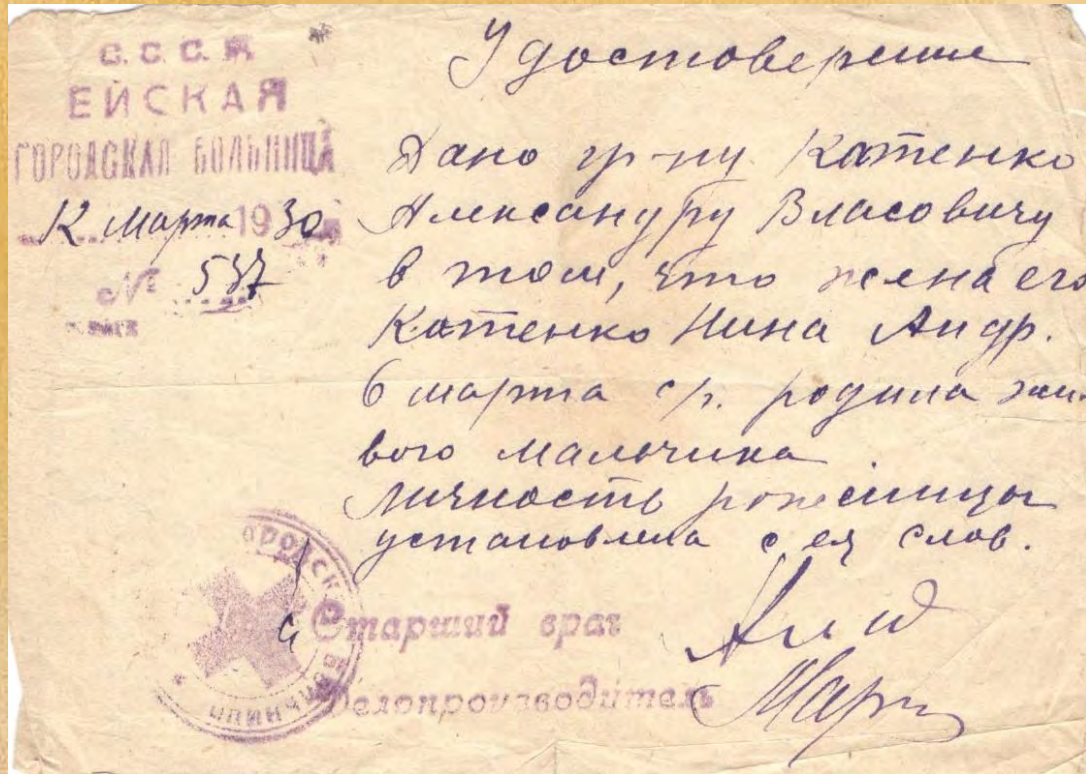 С.С.С.Р.
ЕЙСКАЯ
ГОРОДСКАЯ БОЛЬНИЦА
12 марта 1930
№ 537
Удостоверение
Дано гр-ну Катенко
Александру Власовичу
в том, что жена его
Катенко Нина Андр.
6 марта с/г. родила жи-
вого мальчика.
Личность роженицы
установлена с ея слов.
Старший врач
Делопроизводитель